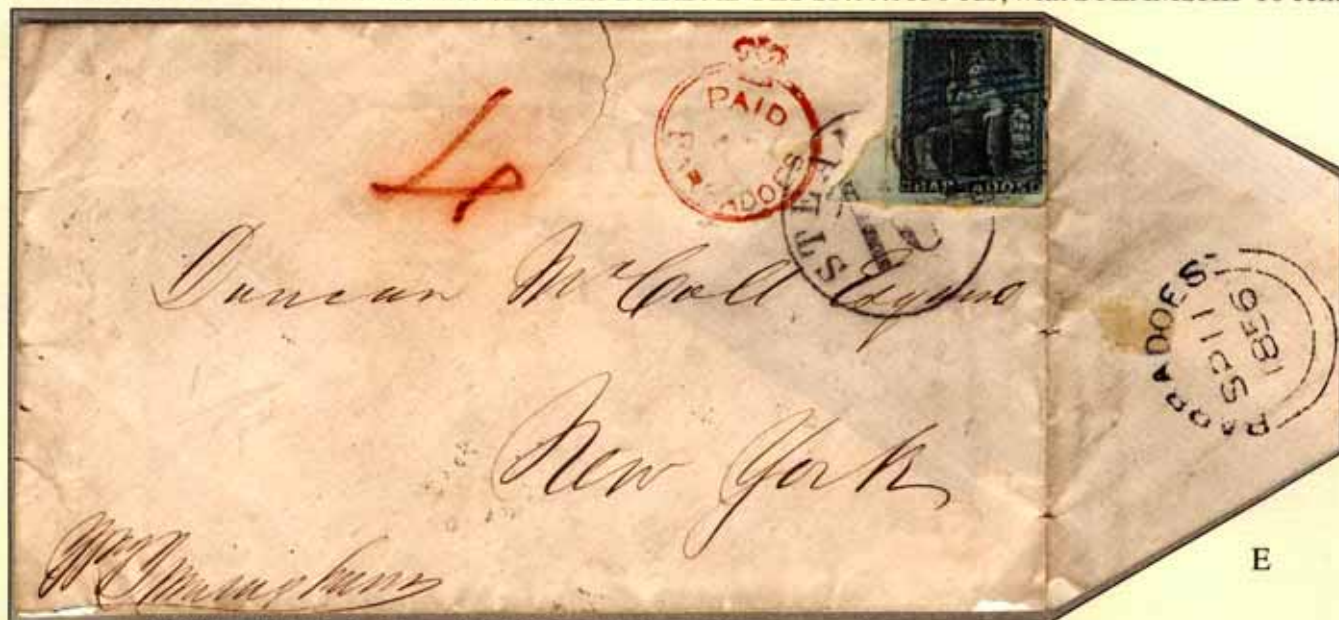 4
PAID
BARBADOES
STEA
10
BARBADOS
Duncan McCall Esquire
New York
BARBADOES
SP 11
1856
E